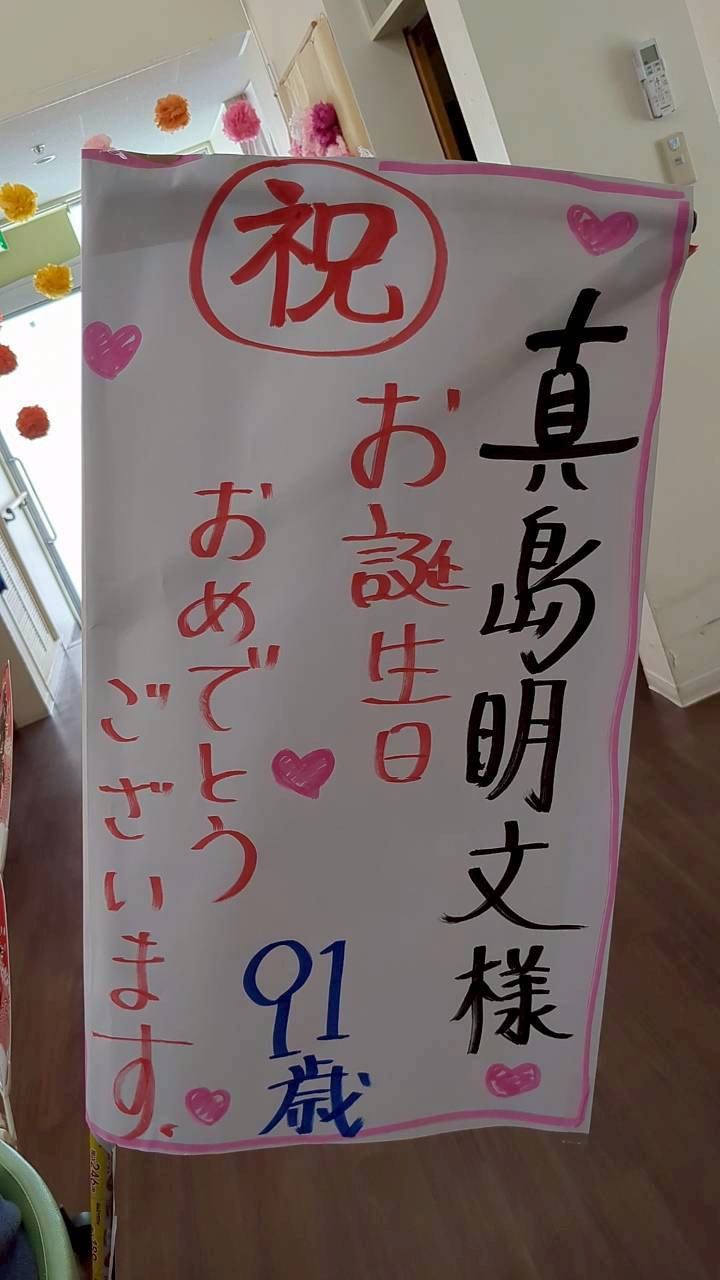 祝
真島明文様
お誕生日
おめでとう
ございます。
91歳